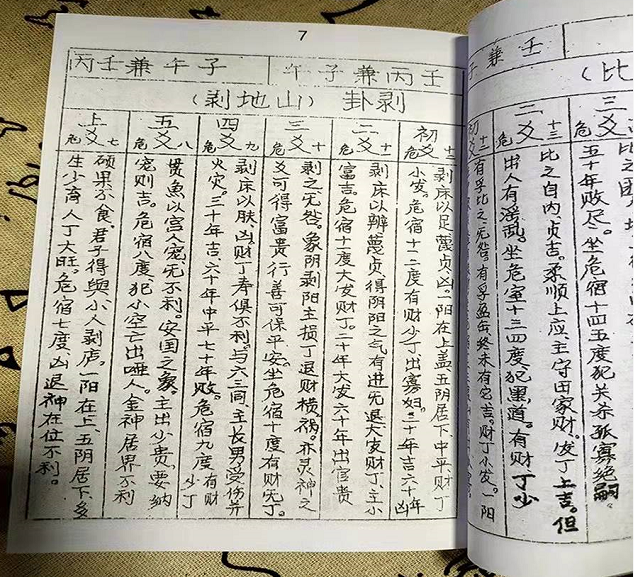 壬兼子
(比
三爻
五十年败尽。坐危宿十四五度犯关杀孤寡绝嗣。
二爻 危十三
比之自内,贞吉。柔顺上应,主守田家财。发丁上吉。但
出人有淫乱。坐危宿十三四度,犯黑道。有财丁少
初爻
有孚比之,无咎。有孚盈缶,终来有它吉。财丁小发。一阳
7
壬丙兼子午
子午兼壬丙
剥卦(山地剥)
初爻 危十二
剥床以足,蔑贞,凶。一阳在上盖五阴居下,中平,财丁
小发。危宿十二度有财少丁,出寡妇。二十年吉六十年凶
二爻 危十一
剥床以辨,蔑贞,得阴阳之气有进无退大发财丁,主小
富吉。危宿十一度大发财丁。二十年大发六十年出官贵
三爻 危十
剥之无咎。象阴剥阳主损丁退财横祸。亦灵神之
爻可得富贵行善可保平安。坐危宿十度有财无丁。
四爻 危九
剥床以肤,凶。财丁寿俱不利。与六三同,主长男受伤并
火灾。三十年吉六十年中平七十年败。危宿九度有财少丁
五爻 危八
贯鱼以宫人宠无不利。安国之象。主出小贵,要纳
宠则吉。危宿八度犯小空亡出哑人。金神居界不利
上爻 危七
硕果不食君子得舆小人剥庐。一阳在上,五阴居下多
生少育人丁大旺。危宿七度,凶退神在位不利。